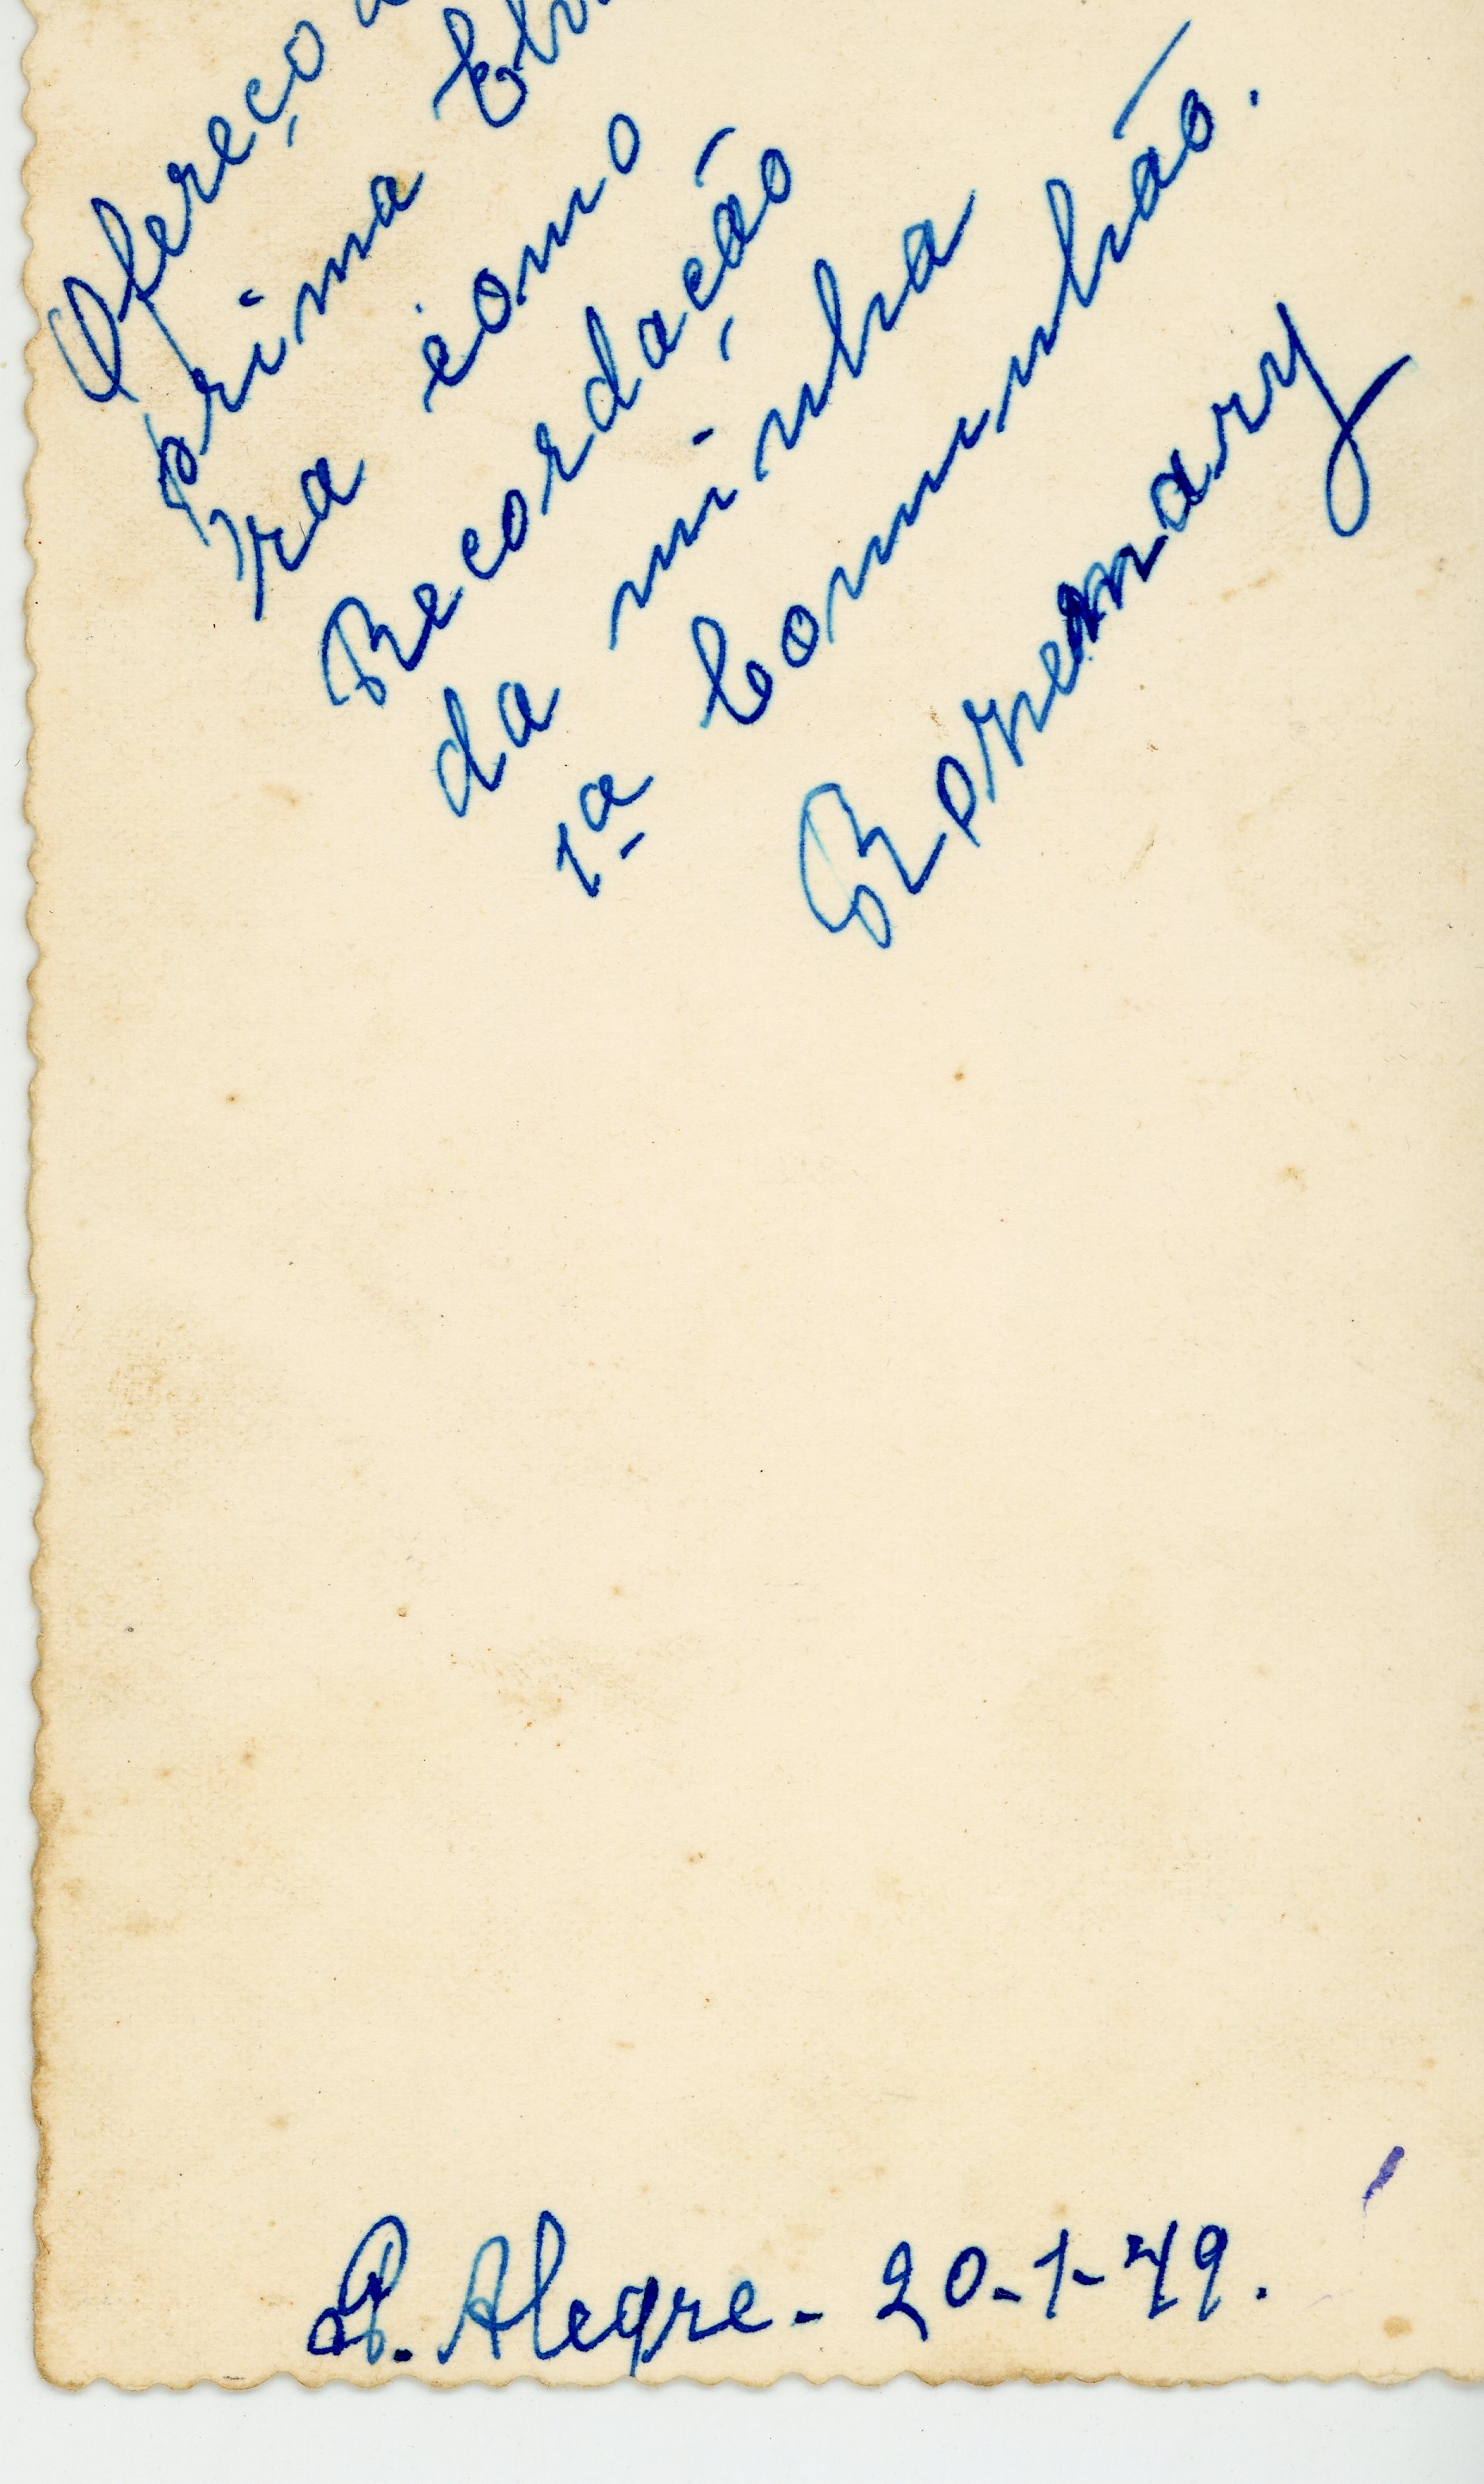 Ofereço a
prima Elvi
ra como
Recordação
da minha
1ª Comunhão.
Rosemary
P. Alegre - 20-1-49.